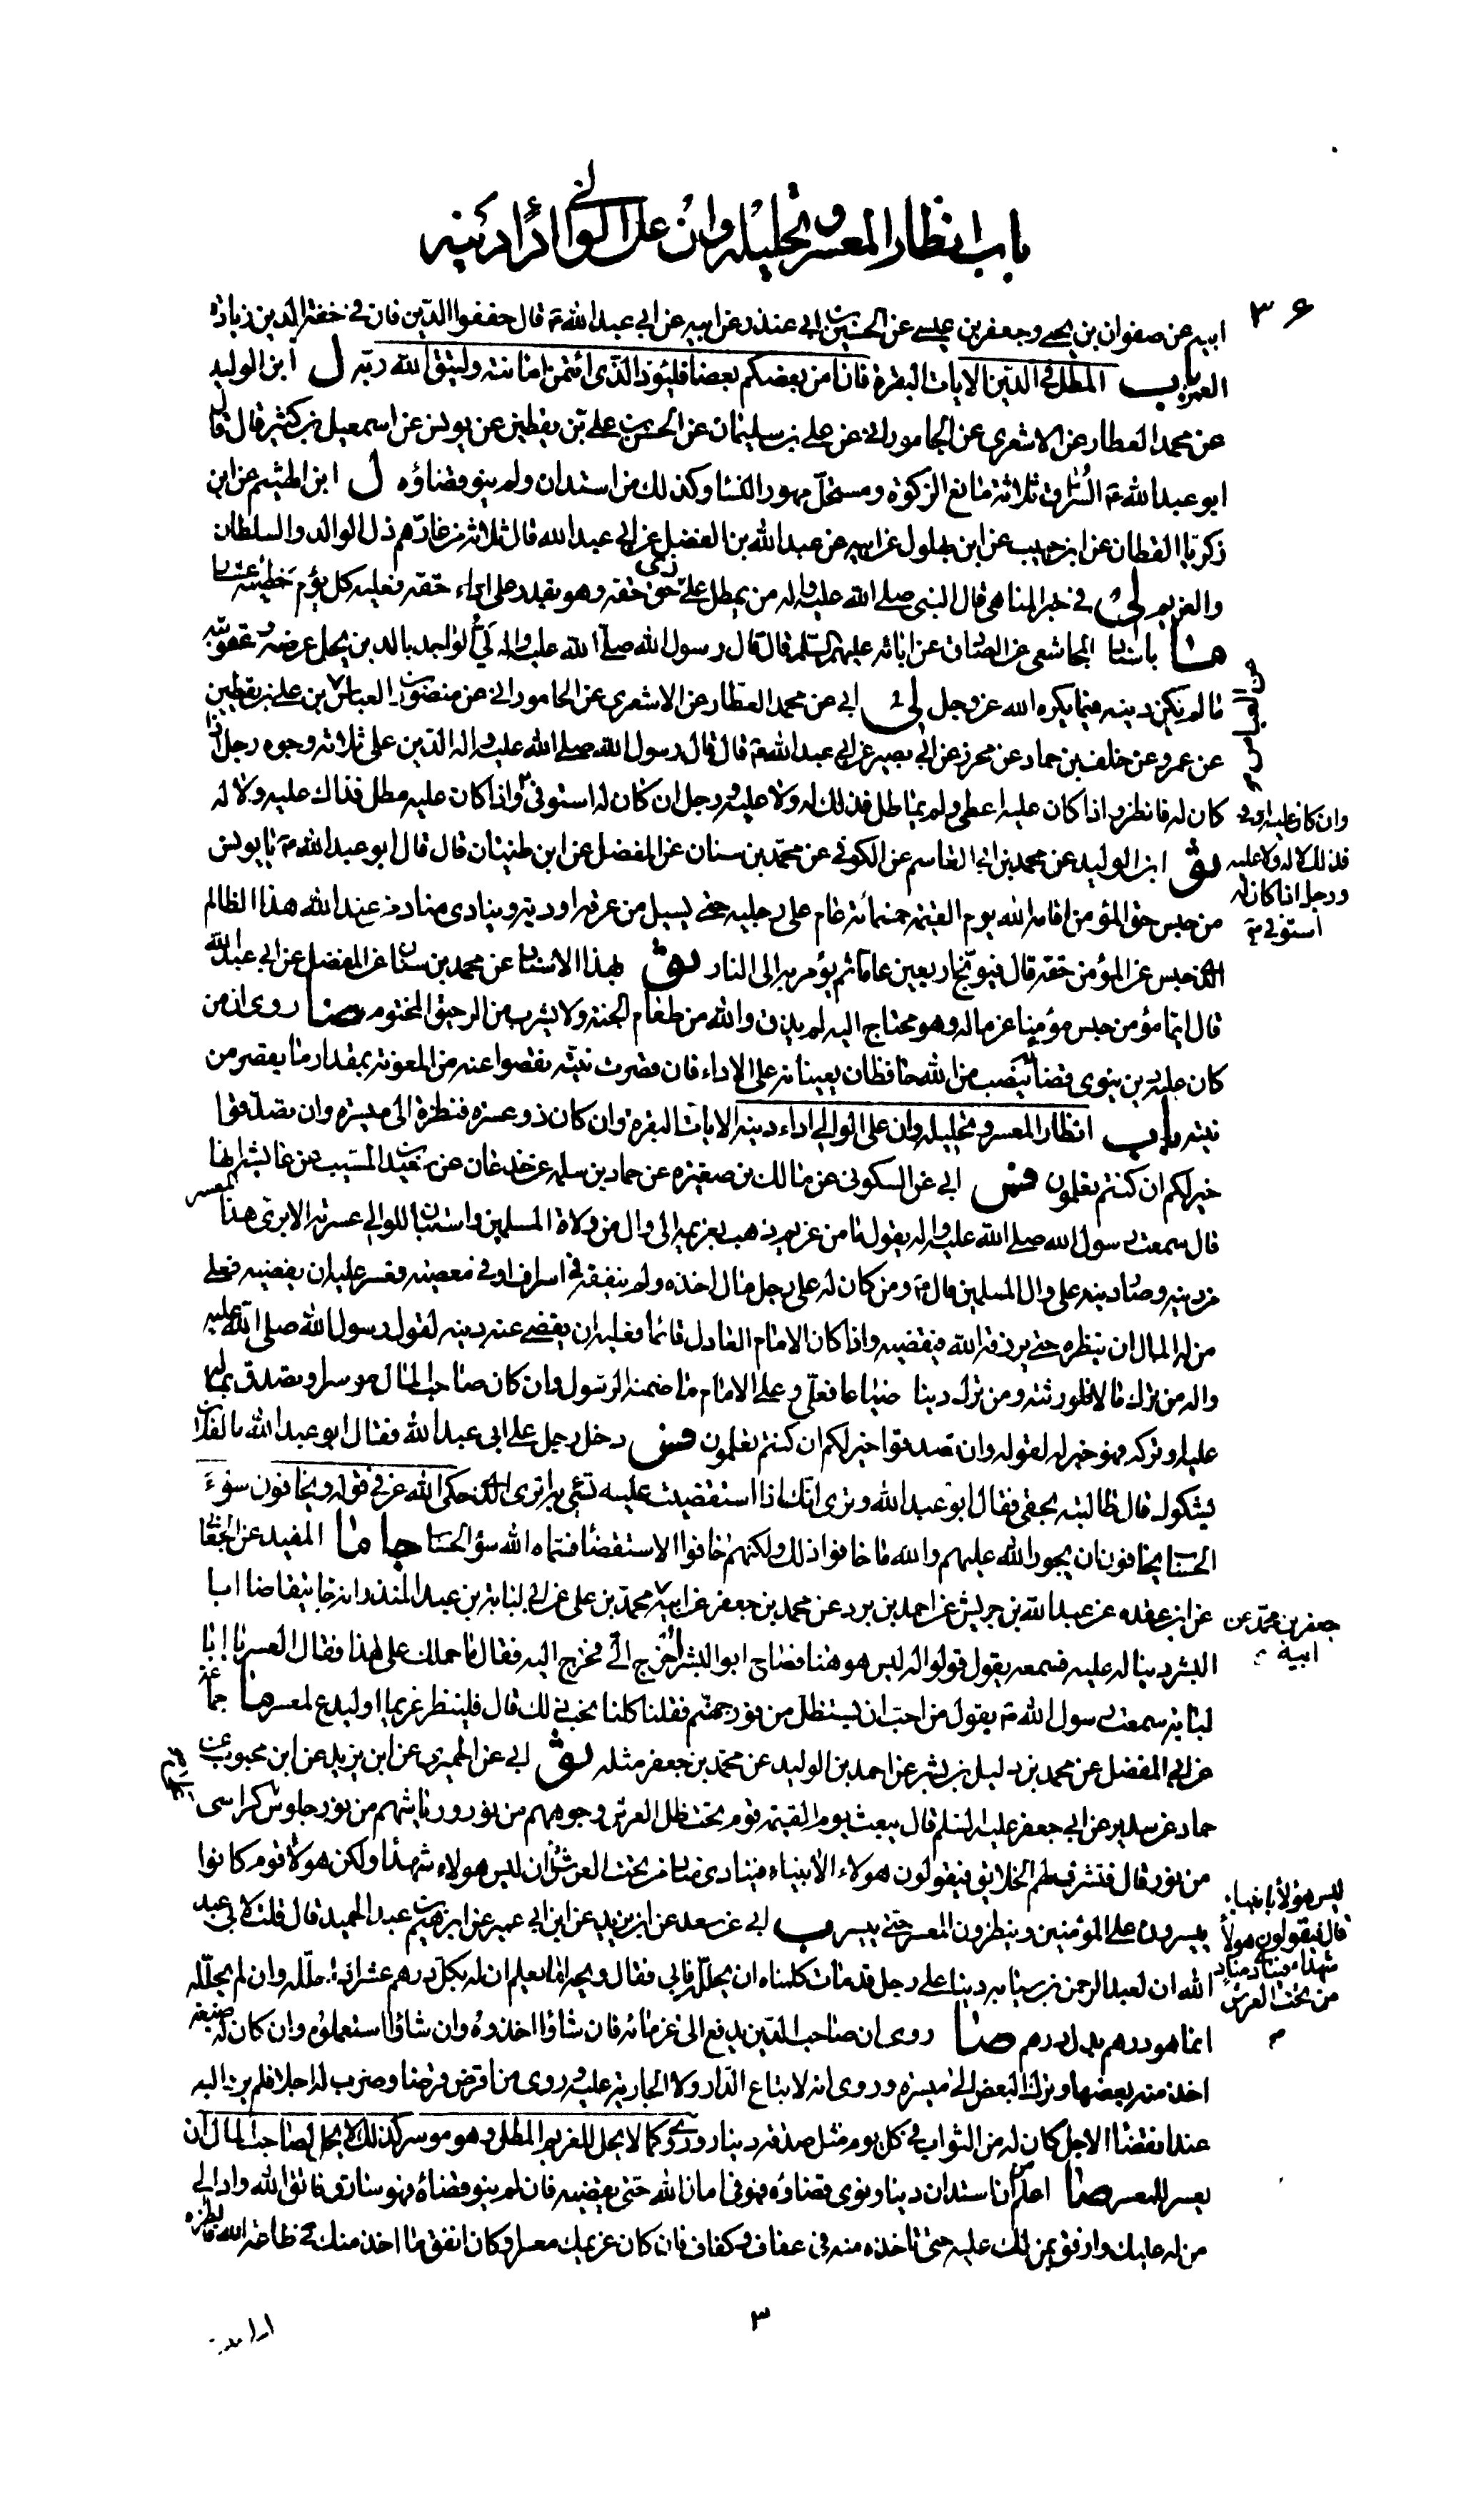 باب انظار المعسر و تحليله وان على الوالي اداء دينه
٣٦
ابيه عن صفوان بن يحيى وجعفر بن عيسى عن الحسين بن ابي غندر عن ابيه عن ابي عبد الله ع قال خففوا الدين فان في خفة الدين زيادة
العمر باب المطل في الدين الايات البقرة فان امن بعضكم بعضا فليؤد الذي ائتمن امانته وليتق الله ربه ل ابن الوليد
عن محمد العطار عن الاشعري عن الجاموراني عن علي بن سليمان عن الحسن بن علي بن يقطين عن يونس عن اسمعيل بن كثير قال قال
ابو عبد الله ع السراق ثلاثة مانع الزكوة ومستحل مهور النساء وكذلك من استدان ولم ينو قضاؤه ل ابن الهيثم عن ابن
زكريا القطان عن ابن حبيب عن ابن بهلول عن ابيه عن عبد الله بن الفضل عن ابي عبد الله قال ثلاثة من عازهم ذل الوالد والسلطان
والغريم لى في خبر المناهي قال النبي صلى الله عليه واله من يمطل على ذي حق حقه وهو يقدر على اداء حقه فعليه كل يوم خطيئة عشار
ما باسناد المجاشعي عن الصادق عن ابائه عليهم السلم قال قال رسول الله صلى الله عليه واله لي الواجد بالدين يحل عرضه وعقوبته
ما لم يكن دينه فيما يكره الله عز وجل لى ابي عن محمد العطار عن الاشعري عن الجاموراني عن منصور بن العباس بن علي بن يقطين
عن العباس م
عن عمرو عن خلف بن حماد عن محرز عن ابي بصير عن ابي عبد الله ع قال قال رسول الله صلى الله عليه واله الدين على ثلاثة وجوه رجل اذا
كان له فانظر واذا كان عليه اعطى ولم يماطل فذلك له ولا عليه ورجل ان كان له استوفى واذا كان عليه مطل فذاك عليه ولا له
وان كان عليه اوفى
فذلك لا له ولا عليه
ورجل اذا كان له
استوفى م
ثو ابن الوليد عن محمد بن ابي القاسم عن الكوفي عن محمد بن سنان عن المفضل عن ابن ظبيان قال قال ابو عبد الله ع يا يونس
من حبس حق المؤمن اقامه الله يوم القيمة خمسمائة عام على رجليه حتى يسيل من عرقه اودية وينادي مناد من عند الله هذا الظالم
الذي حبس عن المؤمن حقه قال فيوبخ اربعين عاما ثم يؤمر به الى النار ثو بهذا الاسناد عن محمد بن سنان عن المفضل عن ابي عبد الله
قال ايما مؤمن حبس مؤمنا عن ماله وهو محتاج اليه لم يذق والله من طعام الجنة ولا يشرب من الرحيق المختوم ضا روى ان من
كان عليه دين ينوي قضاءه ينصب من الله حافظان يعينانه على الاداء فان قصرت نيته نقصوا عنه من المعونة بمقدار ما يقصر من
نيته باب انظار المعسر وتحليله وان على الوالي اداء دينه الايات البقرة وان كان ذو عسرة فنظرة الى ميسرة وان تصدقوا
خير لكم ان كنتم تعلمون فس ابي عن السكوني عن مالك بن مغيرة عن حماد بن سلمه عن جدعان عن سعيد المسيب عن عائشة انها
قال سمعت رسول الله صلى الله عليه واله يقول ما من غريم ذهب بغريمه الى وال من ولاة المسلمين واستبان للوالي عسرته الا برئ هذا المعسر
من دينه وصار دينه على وال المسلمين قال ع ومن كان له على رجل مال اخذه ولم ينفقه في اسراف او في معصية فعسر عليه ان يقضيه فعلى
من له المال ان ينظره حتى يرزقه الله فيقضيه واذا كان الامام العادل قائما فعليه ان يقضي عنه دينه لقول رسول الله صلى الله عليه
واله من ترك مالا فلورثته ومن ترك دينا او ضياعا فعلي وعلى الامام ما ضمنه الرسول وان كان صاحب المال موسرا وتصدق بماله
عليه او تركه فهو خير له لقوله وان تصدقوا خير لكم ان كنتم تعلمون فس دخل رجل على ابي عبد الله فقال ابو عبد الله ما لفلان
يشكوك قال طالبته بحقي فقال ابو عبد الله وترى انك اذا استقضيت عليه لم تسئ به اترى الذي حكى الله عز في قوله ويخافون سوء
الحساب يخافون ان يجور الله عليهم والله ما خافوا ذلك ولكنهم خافوا الاستقضاء فسماه الله سوء الحساب جا ما المفيد عن الجعابي
عن ابن عقده عن عبد الله بن جريش عن احمد بن برد عن محمد بن جعفر عن ابيه محمد بن علي عن ابي لبابة بن عبد المنذر انه جاء يتقاضا ابا
جعفر بن محمد عن
ابيه م
البشر دينا له عليه فسمعه يقول قولوا له ليس هو هنا فصاح ابو البشر اخرج الي فخرج اليه فقال ما حملك على هذا فقال العسر يا ابا
لبابة سمعت رسول الله ع يقول من احب ان يستظل من نور جهنم فقلنا كلنا نحب ذلك قال فلينظر غريما او ليدع لمعسر ما جماعة
عن ابي المفضل عن محمد بن دليل بن بشر عن احمد بن الوليد عن محمد بن جعفر مثله ثو ابي عن الحميري عن ابن يزيد عن ابن محبوب عن
حماد عن سدير عن ابي جعفر عليه السلم قال يبعث يوم القيمة قوم تحت ظل العرش وجوههم من نور ورياشهم من نور جلوس كراسي
من نور قال فتشرف لهم الخلايق فيقولون هولاء الانبياء فينادي مناد من تحت العرش ان ليس هولاء شهداء ولكن هولاء قوم كانوا
ليس هولاء بانبياء
قال فيقولون هولاء
شهداء فينادي مناد
من تحت العرش
م
ييسرون على المؤمنين وينظرون المعسر حتى ييسر ب ابي عن سعد عن ابن يزيد عن ابن ابي عمير عن ابرهيم بن عبد الحميد قال قلت لابي عبد
الله ان لعبد الرحمن بن سيابه دينا على رجل قد مات كلمناه ان يحلله فابى فقال ويحه اما يعلم ان له بكل درهم عشرة اذا حلله وان لم يحلله
انما هو درهم بدل درهم ضا روى ان صاحب الدين يدفع الى غرمائه فان شاؤا اخذوه وان شاؤا استعملوه وان كان له ضيعة
اخذ منه بعضها وترك البعض الى ميسرة وروى انه لا يباع الدار ولا الجارية عليه وروى من اقرض قرضا وضرب له اجلا فلم يرد اليه
عند انقضاء الاجل كان له من الثواب في كل يوم مثل صدقة دينار وروى كما لا يحل للغريم المطل وهو موسر كذلك لا يحل لصاحب المال ان
يعسر المعسر ضا اعلم ان من استدان دينا ونوى قضاؤه فهو في امان الله حتى يقضيه فان لم ينو قضاه فهو سارق فاتق الله واد الى
من له عليك وارفق بمن لك عليه حتى تاخذه منه في عفاف وكفاف فان كان غريمك معسرا وكان انفق ما اخذ منك في طاعة الله فانظره
٣